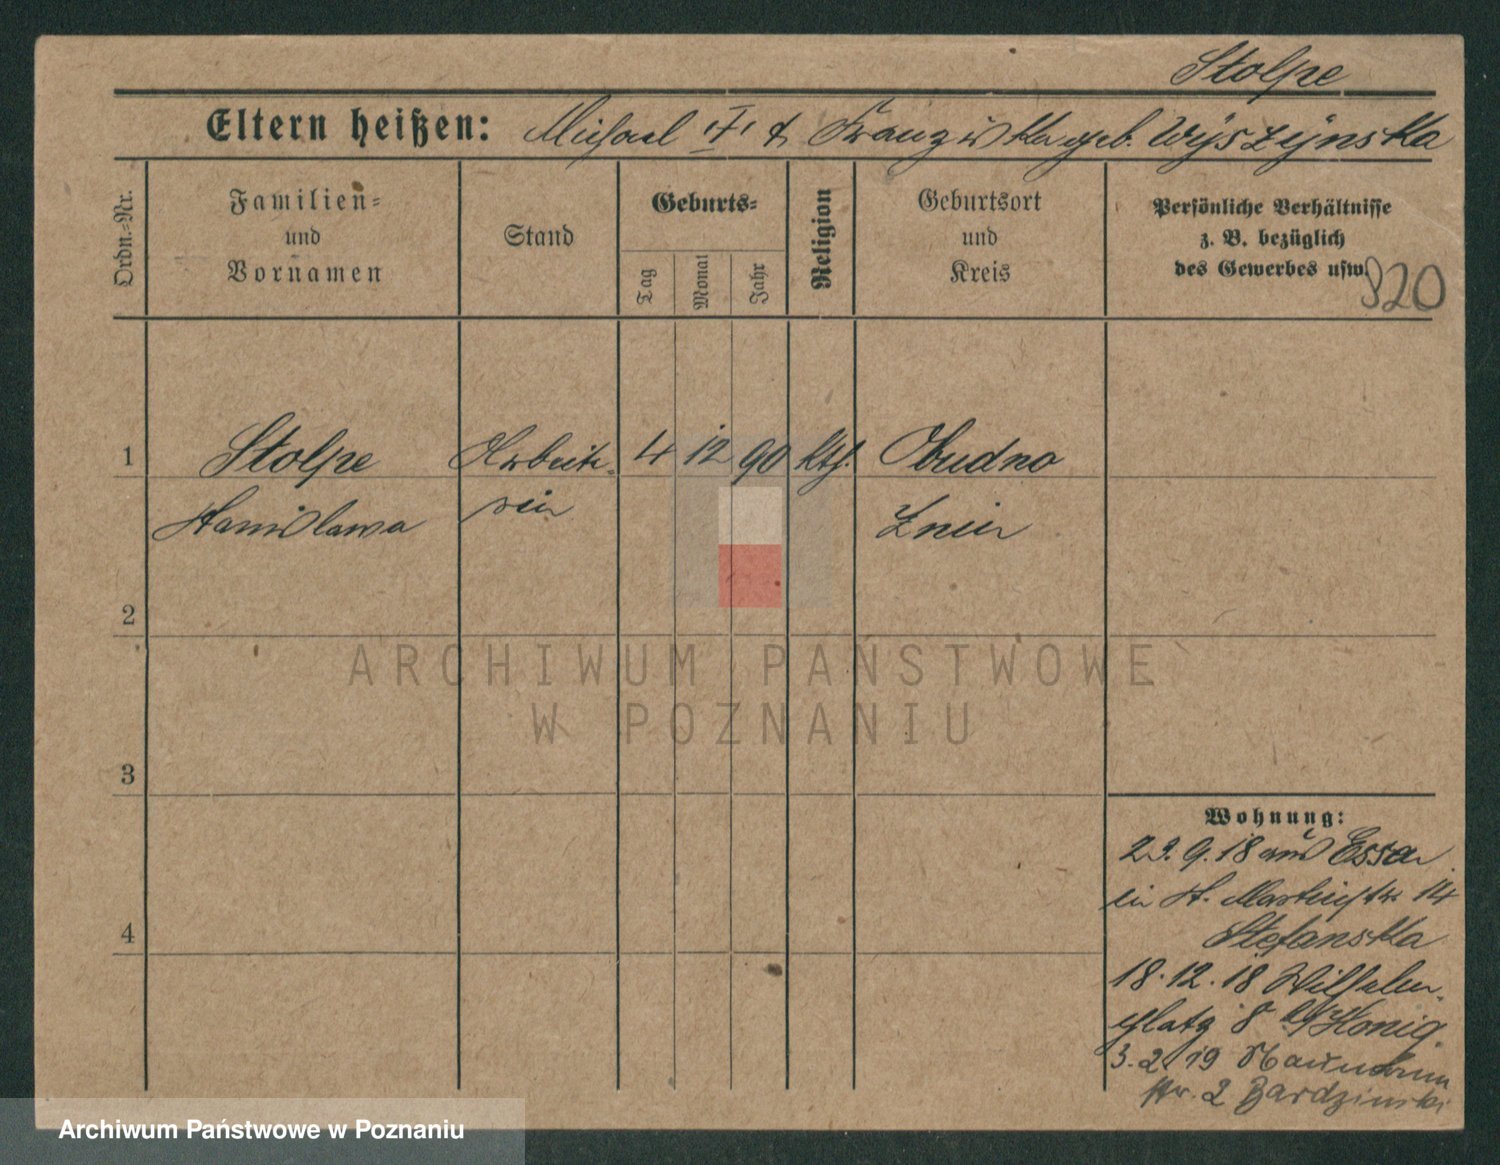 Stolpe
Eltern heißen: Michael & Franziska geb. Wyszynska
Ordn.-Nr.
Familien-
und
Vornamen
Stand
Geburts-
Tag
Monat
Jahr
Religion
Geburtsort
und
Kreis
Persönliche Verhältnisse
z. B. bezüglich
des Gewerbes usw.
920
1
Stolpe
Arbeite-
4 12 90 kth.
Obudno
Stanislawa
rin
Znin
2
ARCHIWUM PAŃSTWOWE
W POZNANIU
3
4
Wohnung:
23.9.18 aus Essen
in St. Martinstr. 14
Stefanska
18.12.18 Wilhelm-
platz 8 b/Honig.
3.2.19 Naumann
str. 2 Bardzinski
Archiwum Państwowe w Poznaniu